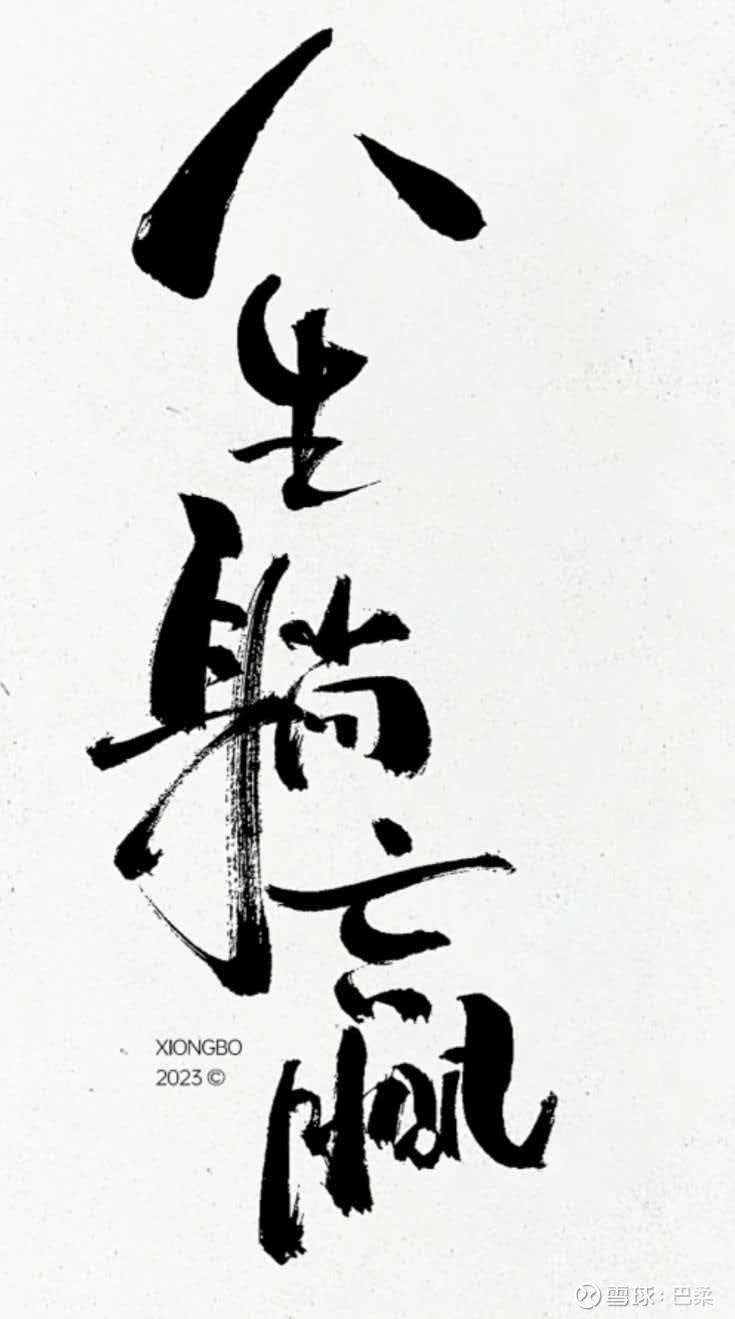 人生躺赢
XIONGBO
2023 ©
雪球：巴柔